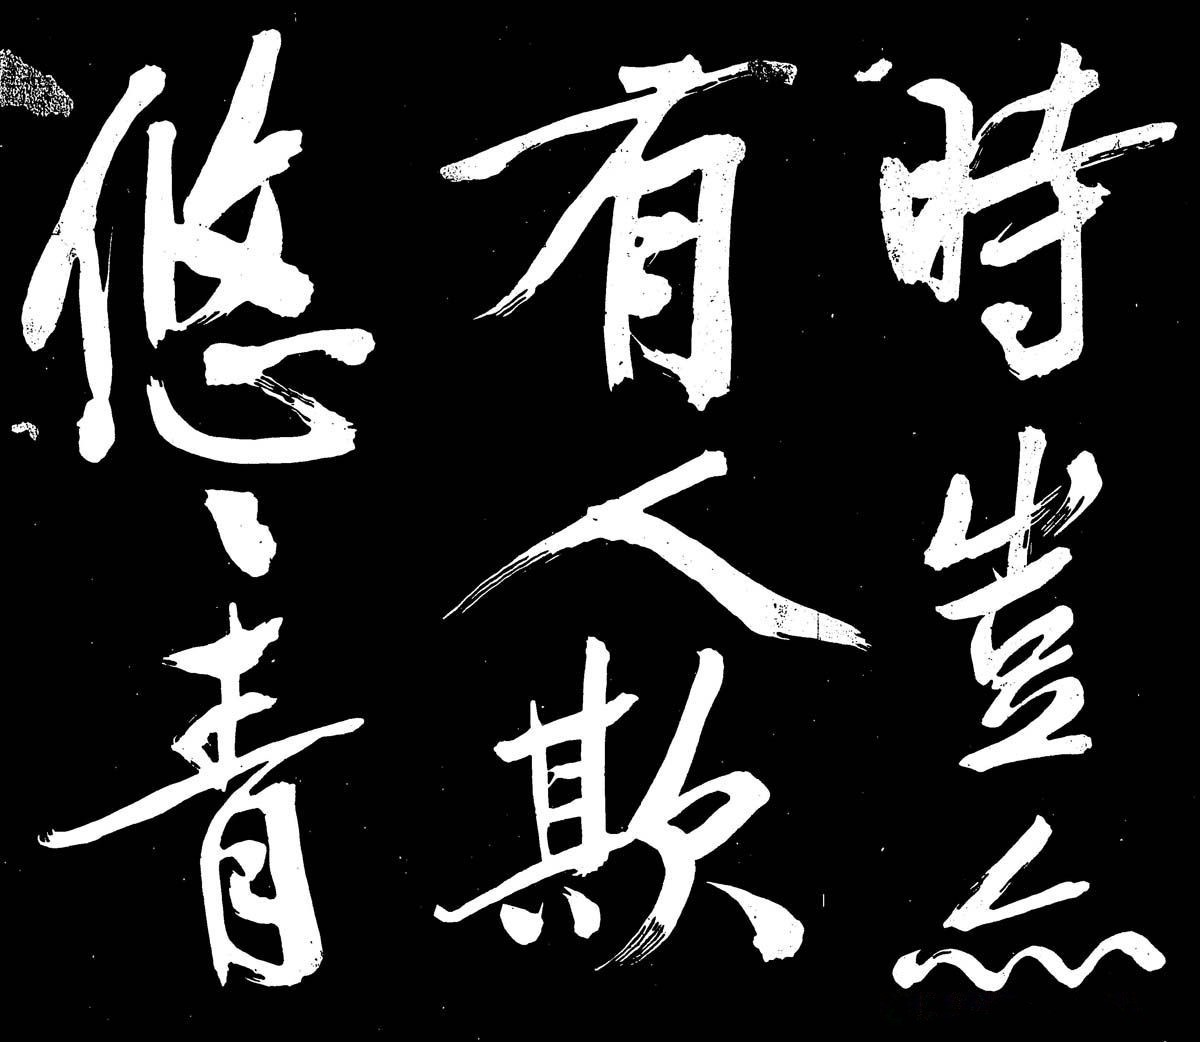 時豈無
有人欺
悠々青